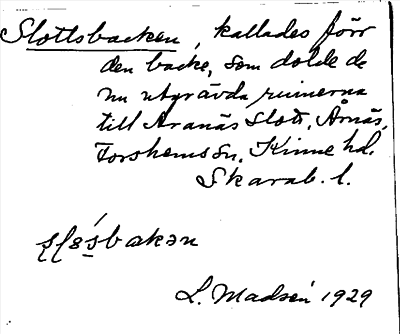 Slottsbacken, kallades förr
den backe, som dolde de
nu utgrävda ruinerna
till Aranäs slott, Årnäs,
Forshems sn, Kinne hd.
Skarab. l.
L. Madsén 1929